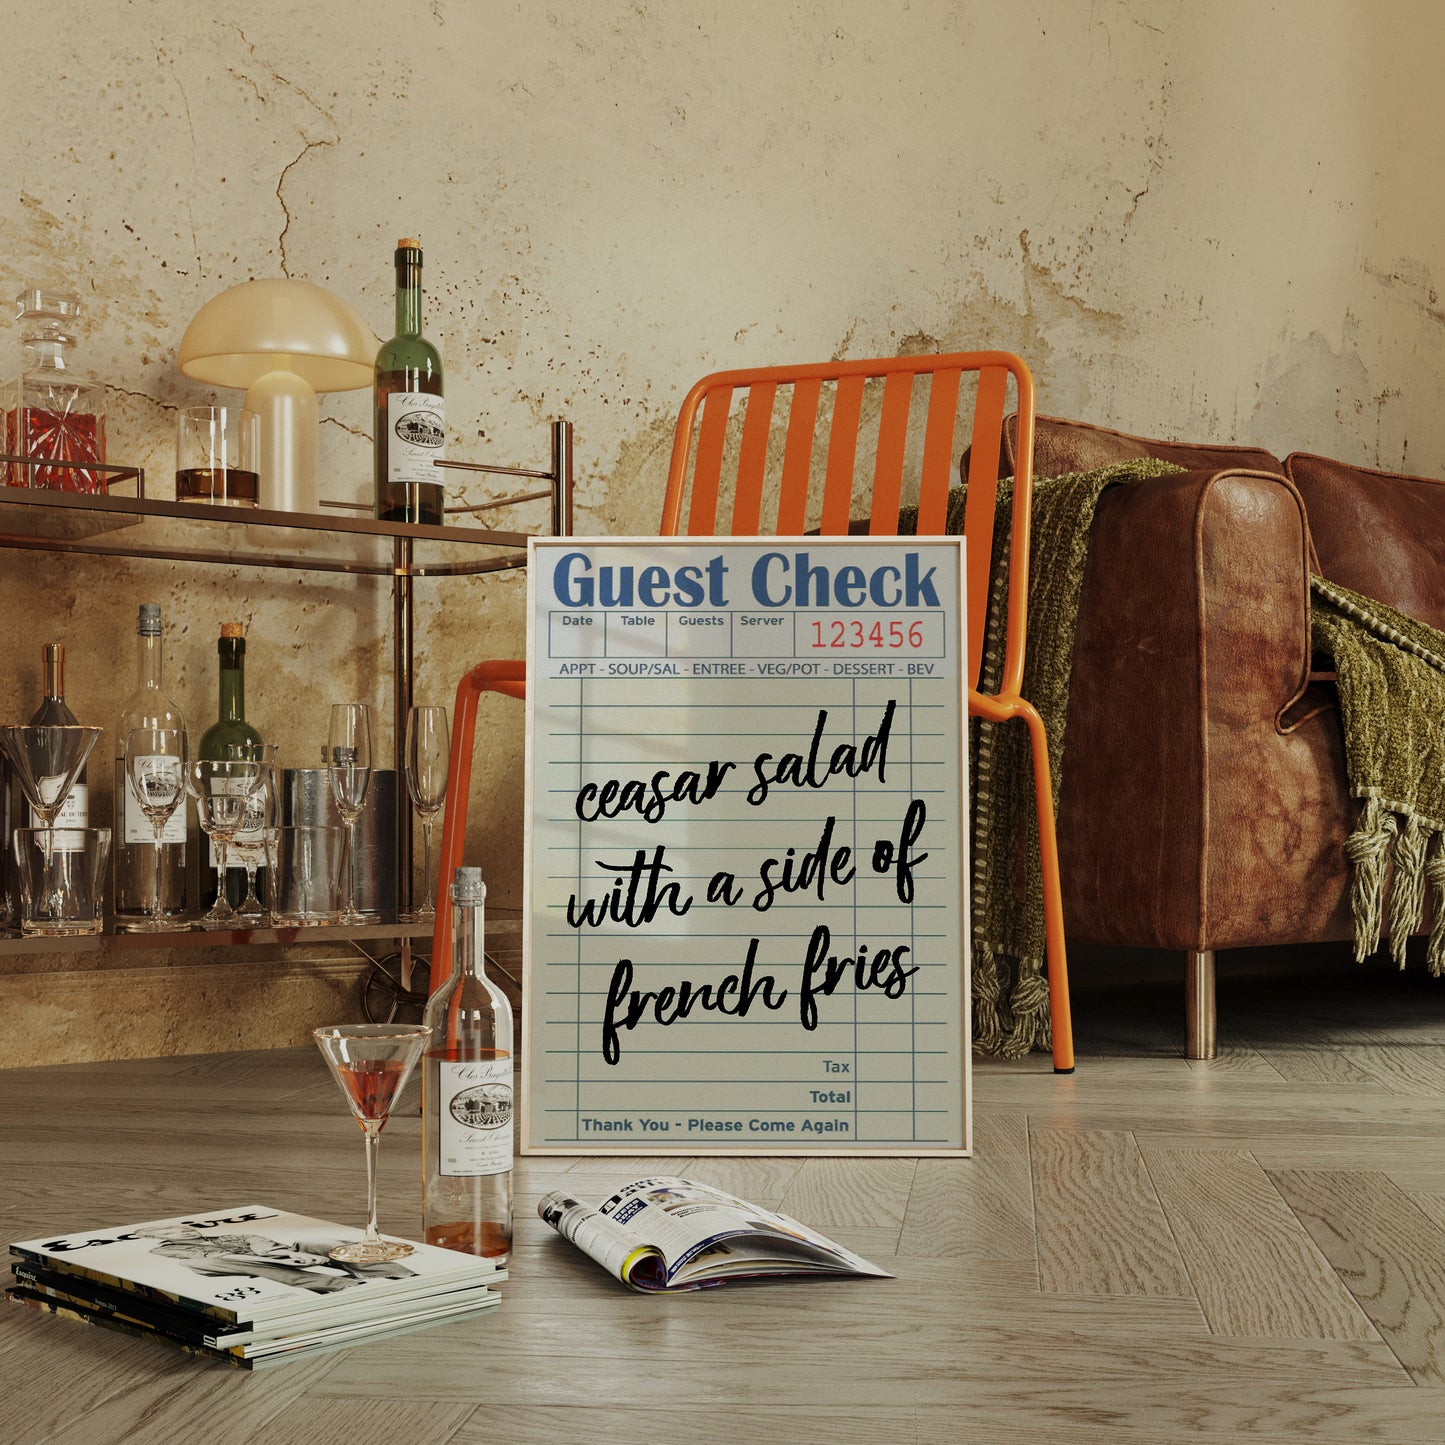 Guest Check
Date Table Guests Server 123456
APPT - SOUP/SAL - ENTREE - VEG/POT - DESSERT - BEV
ceasar salad
with a side of
french fries
Tax
Total
Thank You - Please Come Again
Esquire
Esquire